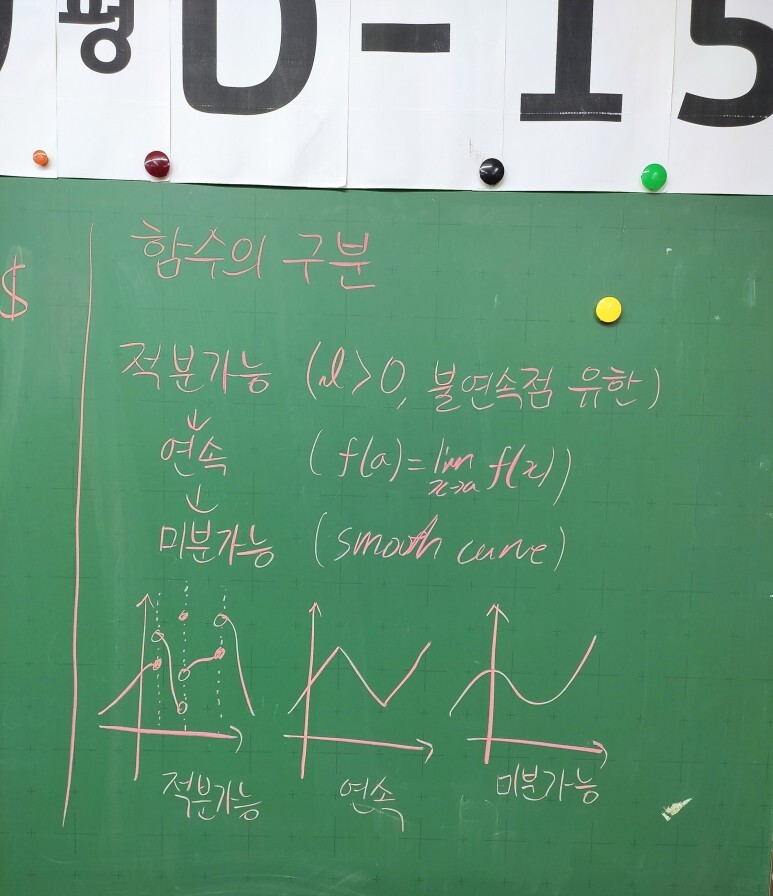 D-15
$
함수의 구분
적분가능 ( >0, 불연속점 유한)
↓
연속 (f(a)=lim x→a f(x))
↓
미분가능 (smooth curve)
적분가능 연속 미분가능